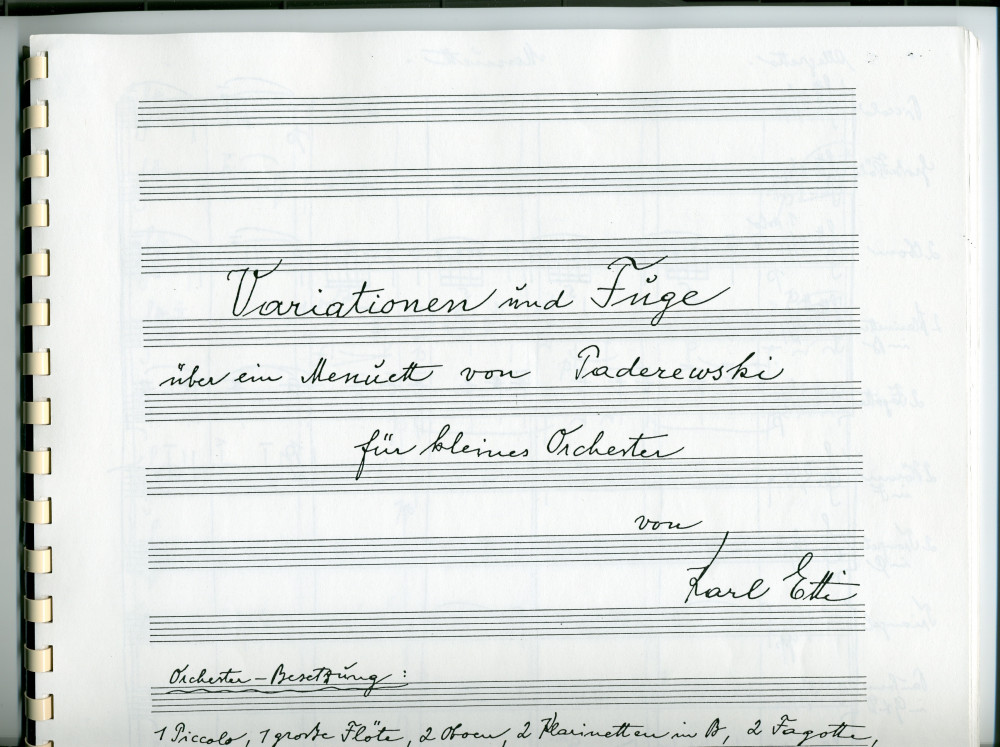 Variationen und Fuge
über ein Menuett von Paderewski
für kleines Orchester
von
Karl Etti
Orchester-Besetzung:
1 Piccolo, 1 große Flöte, 2 Oboen, 2 Klarinetten in B, 2 Fagotte,